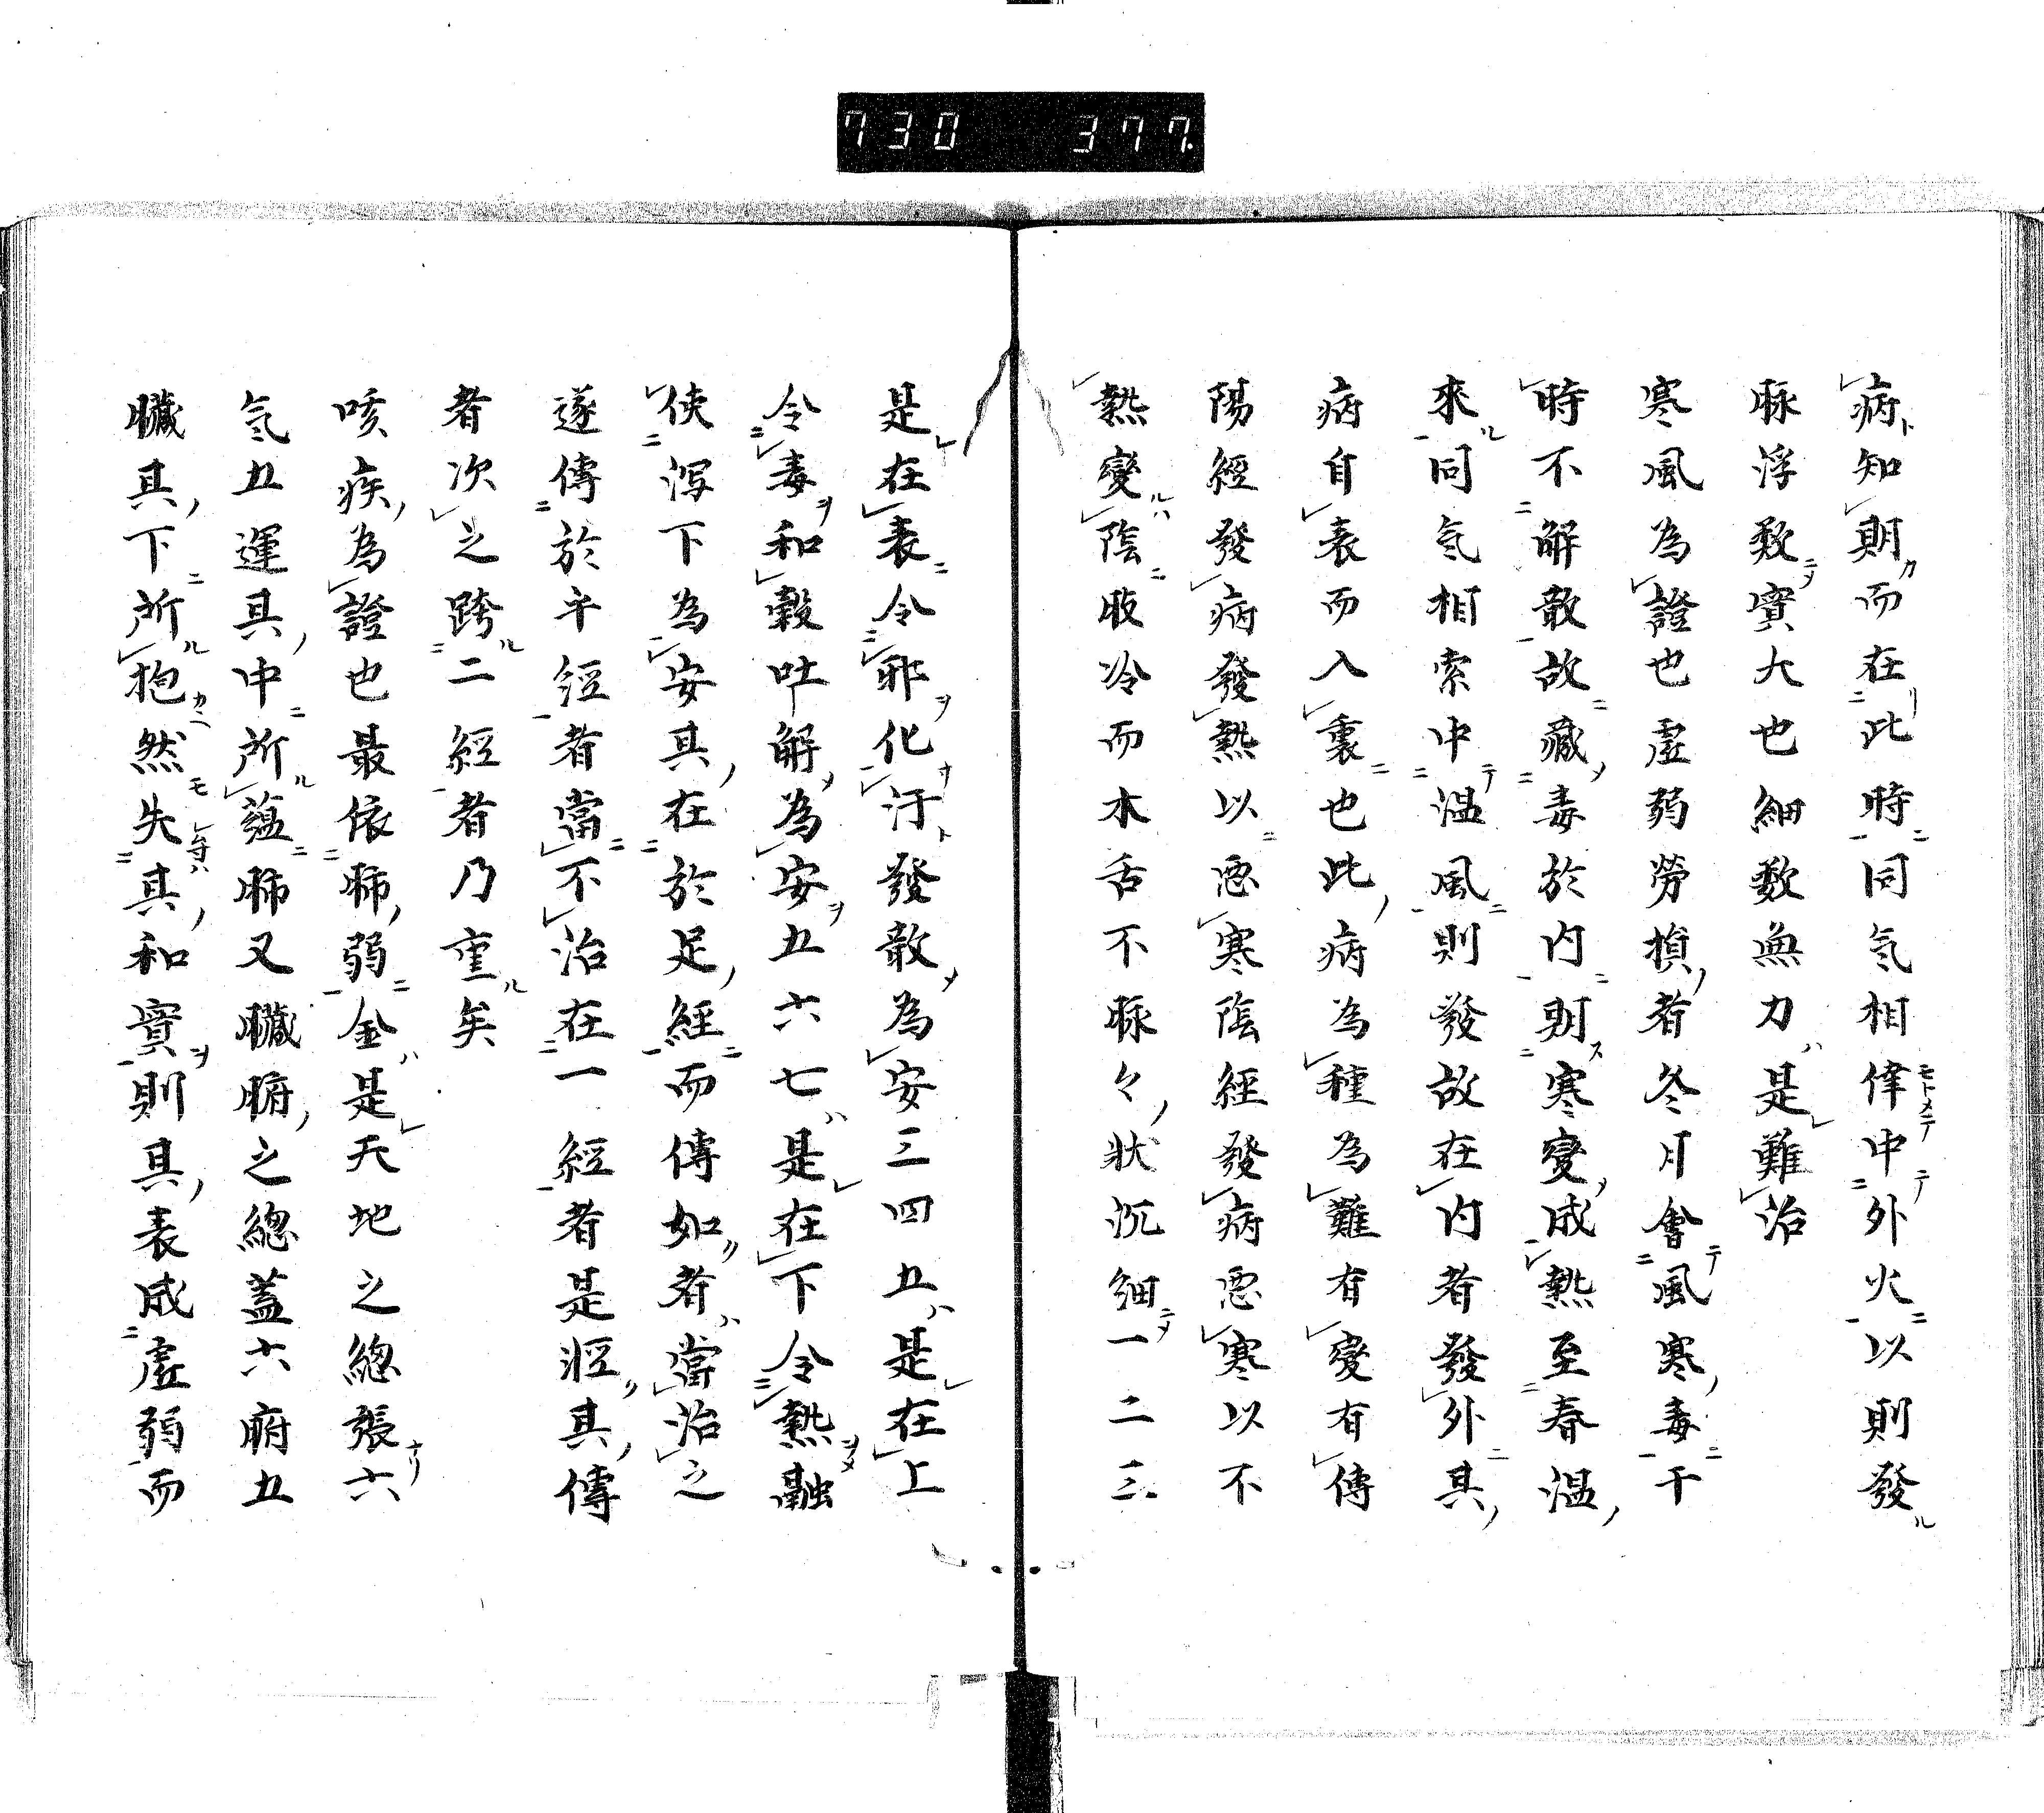 730 377.
病知則而在此時同气相俥中外火以則發
脉浮数實大也細数無力是難治
寒風為證也虚弱勞損者冬月會風寒毒干
時不解散故藏毒於内則寒變成熱至春温
來同气相索中温風則發故在内者發外其
病自表而入裏也此病為種為難有變有傳
陽經發病發熱以悪寒陰經發病悪寒以不
熱變陰收冷而木舌不脉々状沉細一二三
是在表令邪化汗發散為安三四五是在上
令毒和穀吐解為安五六七是在下令熱融
使泻下為安其在於足經而傳如者當治之
遂傳於手經者當不治在一經者是経其傳
者次之跨二經者乃重矣
咳疾為證也最依肺弱金是天地之總張六
气五運具中所蕴肺又臓腑之總蓋六府五
臓其下所抱然失其和實則其表成虚弱而